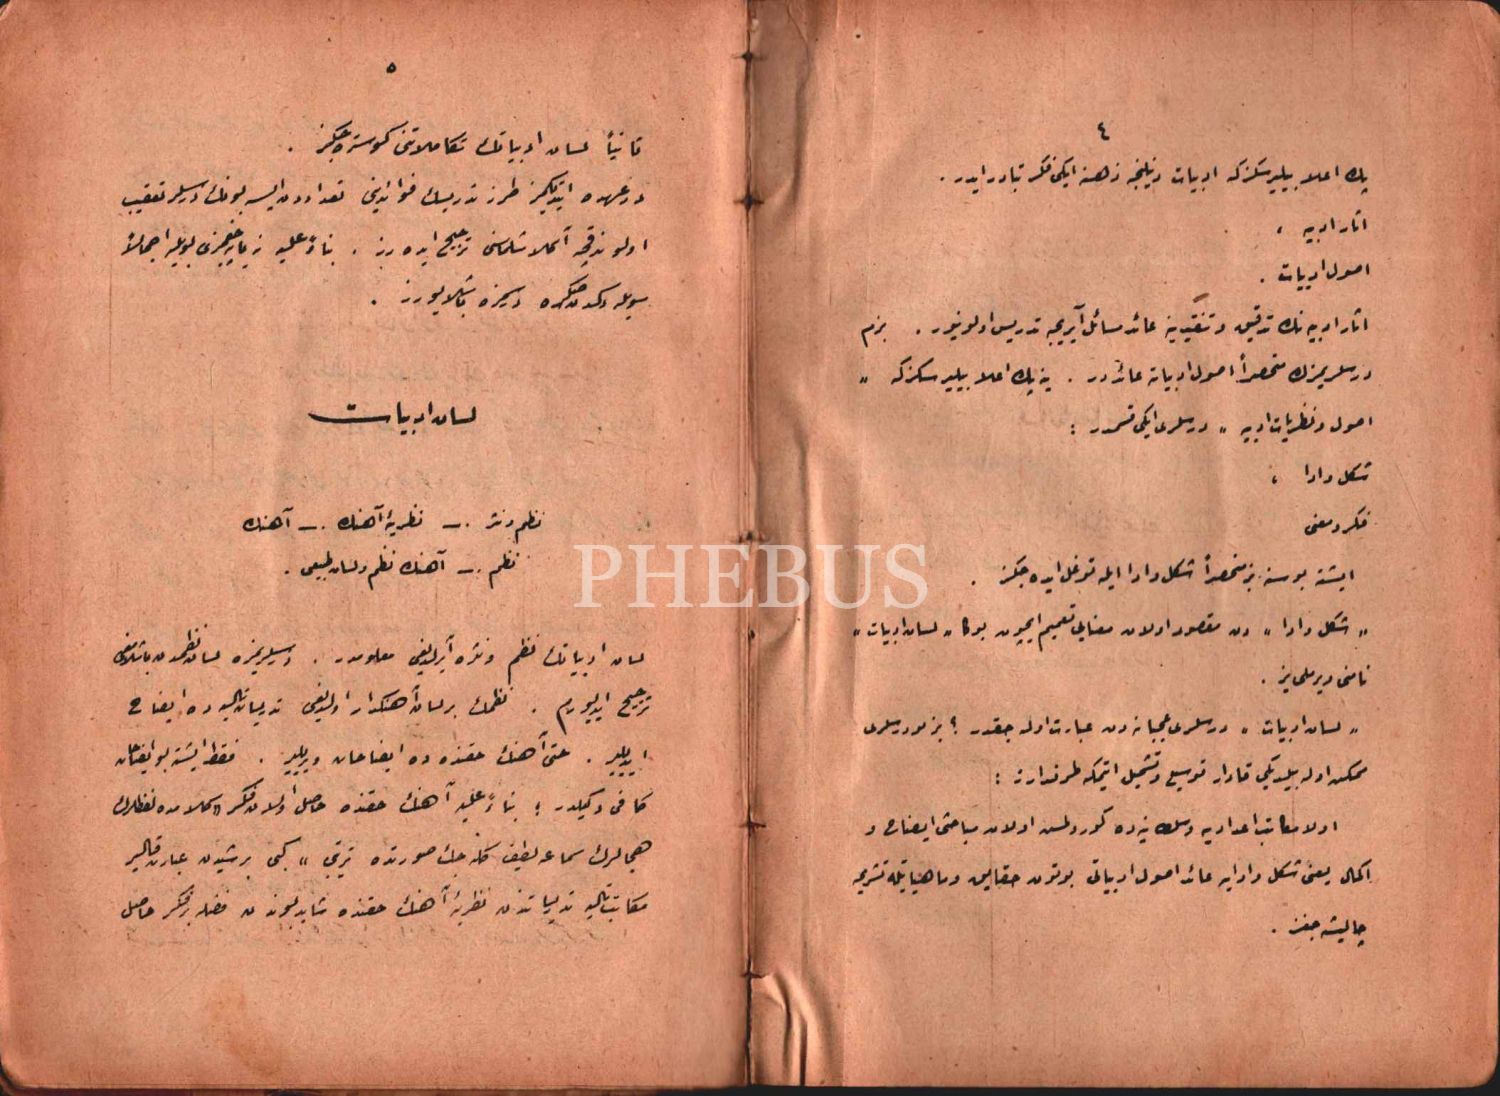 ٤
پك اعلا بيليرسكزكه ادبيات دينلنجه ذهنه ايكی فكر تبادر ايدر .
آثار ادبيه ،
اصول ادبيات .
آثار ادبيه نك تدقيق و تنقيدينه عائد مسائل آيريجه تدريس اولونيور . بزم
درسلريمزك منحصراً اصول ادبياته عائددر . ينه پك اعلا بيليرسكزكه "
اصول و نظريات ادبيه " درسلری ايكی قسمدر :
شكل و ادا ،
فكر و معنی
ايشته بو سنه بز منحصراً شكل و ادا ايله توغل ايده جكز .
" شكل و ادا " دن مقصود اولان معنايی تعميم ايچون بوكا " لسان ادبيات "
نامنی ويرملی يز .
" لسان ادبيات " درسلری عجبا نه دن عبارت اوله جقدر ؟ بز بو درسلری
ممكن اوله بيلديكی قادار توسيع و تشميل ايتمكه طرفدارز :
اولا مكاتب اعداديه و سلطانيه ده كورولمش اولان مباحثی ايضاح و
اكمال يعنی شكل و ادايه عائد اصول ادبياتی بوتون حقايق و ماهياتيله تشريحه
چاليشه جغز .
٥
ثانياً لسان ادبياتك تكاملاتنی كوستره جكز .
درعهده ايتديكمز طرز تدريسك فوائدينی تعداددن ايسه بونك درسلر تعقيب
اولوندقجه آكلاشلماسنی ترجيح ايده رز . بناءً عليه زياده اجمالاً
سويله دكدن صكره درسمزه باشلايورز .
لسان ادبيات
نظم و نثر .— نظريهٔ آهنك .— آهنك
نظم .— آهنك نظم و لسان طبيعی .
لسان ادبياتك نظم و نثره آيرلديغی معلومدر . درسلريمزه لسان نظمدن باشلامغی
ترجيح ايديورم . نظمك بر لسان آهنكدار اولديغی تدريسات تاليه ده ايضاح
ايديلير . حتی آهنك حقنده ده ايضاحات ويريلير . فقط ايشته بو ايضاحات
كافی دكلدر ؛ بناءً عليه آهنك حقنده حاصل اولان فكر "كلامده لفظلرك
هجالرك سماعه لطيف كله جك صورتده ترتيبی " كبی بر شيدن عبارت قالير
مكاتب تاليه تدريساتندن نظريهٔ آهنك حقنده شايد بوندن فضله بر فكر حاصل
PHEBUS